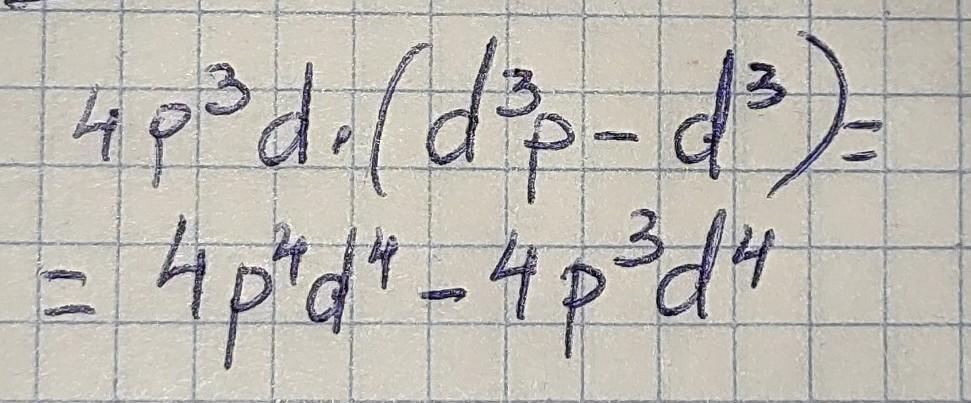 4p³d·(d³p - d³) =
= 4p⁴d⁴ - 4p³d⁴